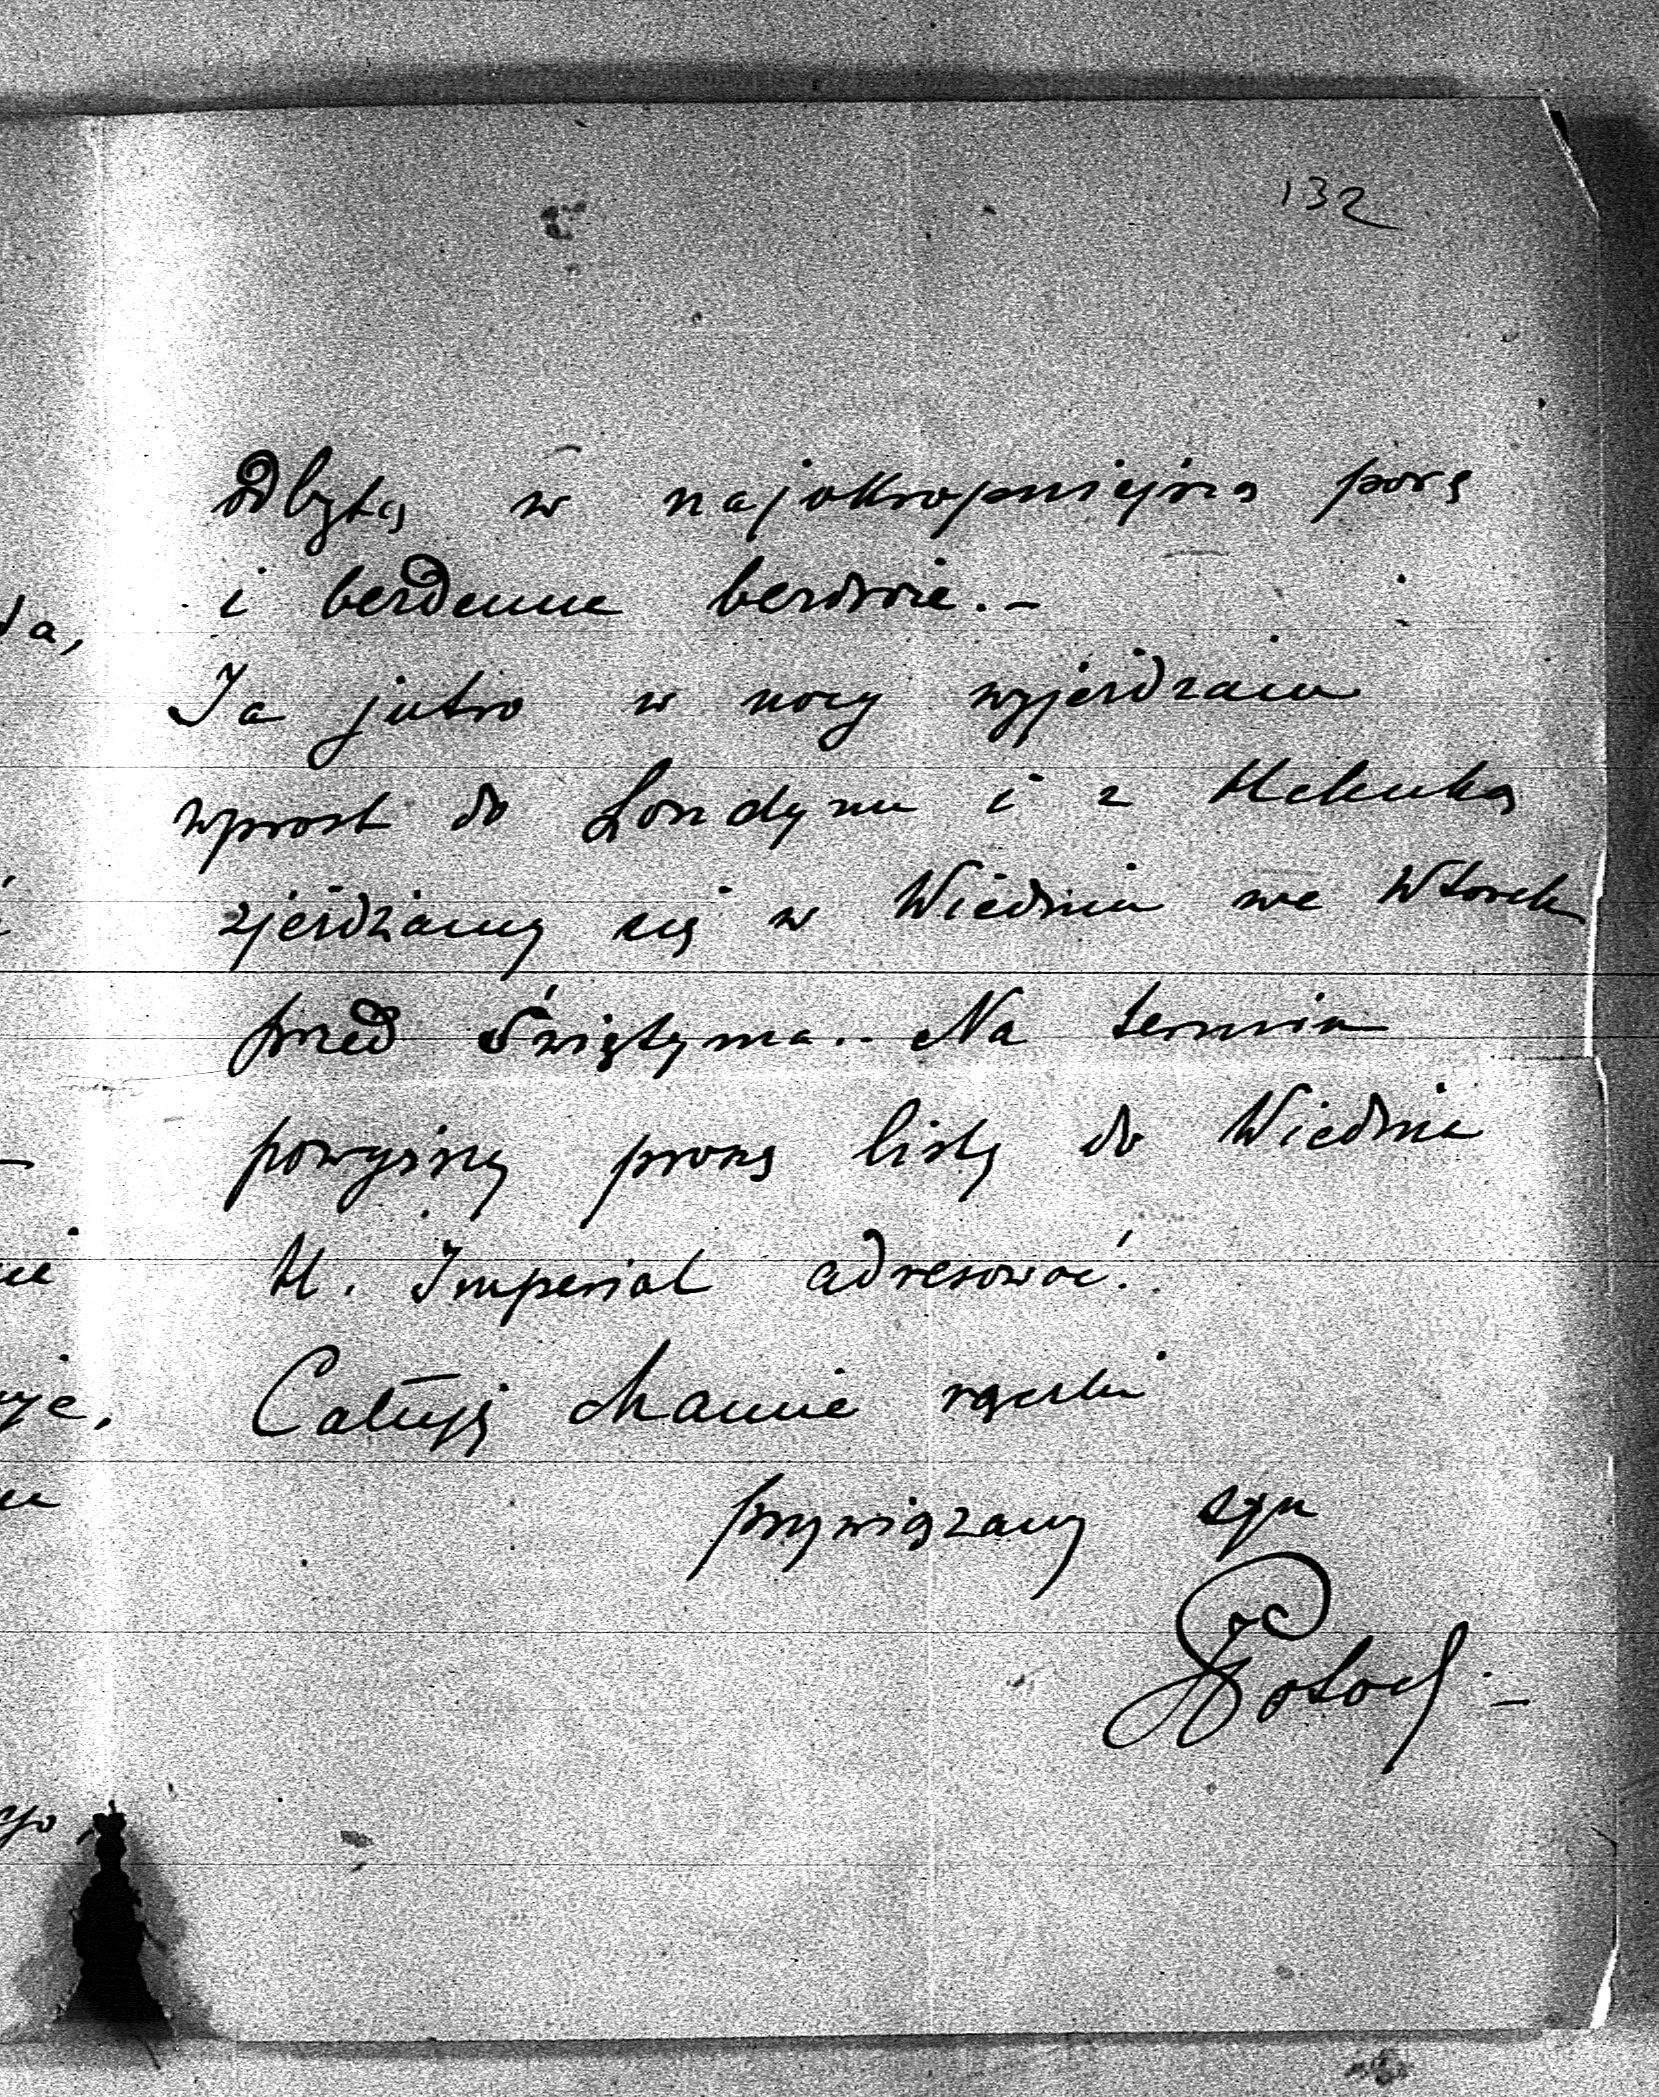 132
odbytą w najokropniejszą porę
i bezdenne bezdroże. –
Ja jutro w nocy wyjeżdżam
wprost do Londynu i z
zjeżdżamy się w Wiedniu we Wtorek
przed Świętyma.. Na termin
powyższy proszę listy do Wiednia
H. Imperial adresować!
Całuję Mamie rączki
przywiązany syn
Potocki –